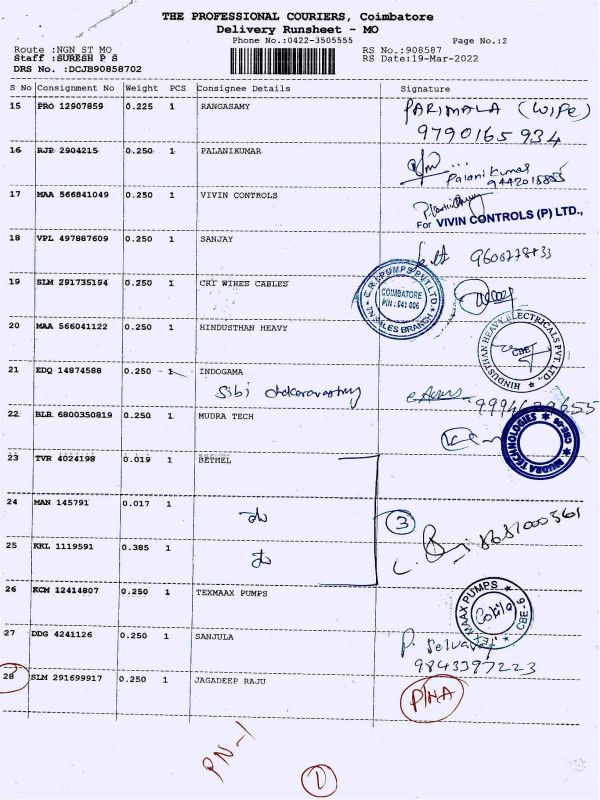 THE PROFESSIONAL COURIERS, Coimbatore
Delivery Runsheet - MO
Phone No.:0422-3505555 Page No.:2
Route :NGN ST MO RS No.:908587
Staff :SURESH P S RS Date:19-Mar-2022
DRS No. :DCJB90858702
S No Consignment No Weight PCS Consignee Details Signature
15 PRO 12907859 0.225 1 RANGASAMY PARIMALA (Wife)
9790165934
16 RJP 2904215 0.250 1 PALANIKUMAR
Palanikumar
17 MAA 566841049 0.250 1 VIVIN CONTROLS
For VIVIN CONTROLS (P) LTD.,
18 VPL 497887609 0.250 1 SANJAY
19 SLM 291735194 0.250 1 CRI WIRES CABLES
C.R.I PUMPS PVT LTD
COIMBATORE
PIN : 641 006
SALES BRANCH
20 MAA 566041122 0.250 1 HINDUSTHAN HEAVY
HINDUSTHAN HEAVY ELECTRICALS PVT. LTD.,
CBE
21 EDQ 14874588 0.250 1 INDOGAMA
Sibi
22 BLR 6800350819 0.250 1 MUDRA TECH
MUDRA TECHNOLOGIES
23 TVR 4024198 0.019 1 BETHEL
24 MAN 145791 0.017 1
do 3
25 KKL 1119591 0.385 1
do
26 KCM 12414807 0.250 1 TEXMAAX PUMPS
TEXMAAX PUMPS
CBE-6
27 DDG 4241126 0.250 1 SANJULA P. Selvaraj
9843397223
28 SLM 291699917 0.250 1 JAGADEEP RAJU PNA
PN-1
1